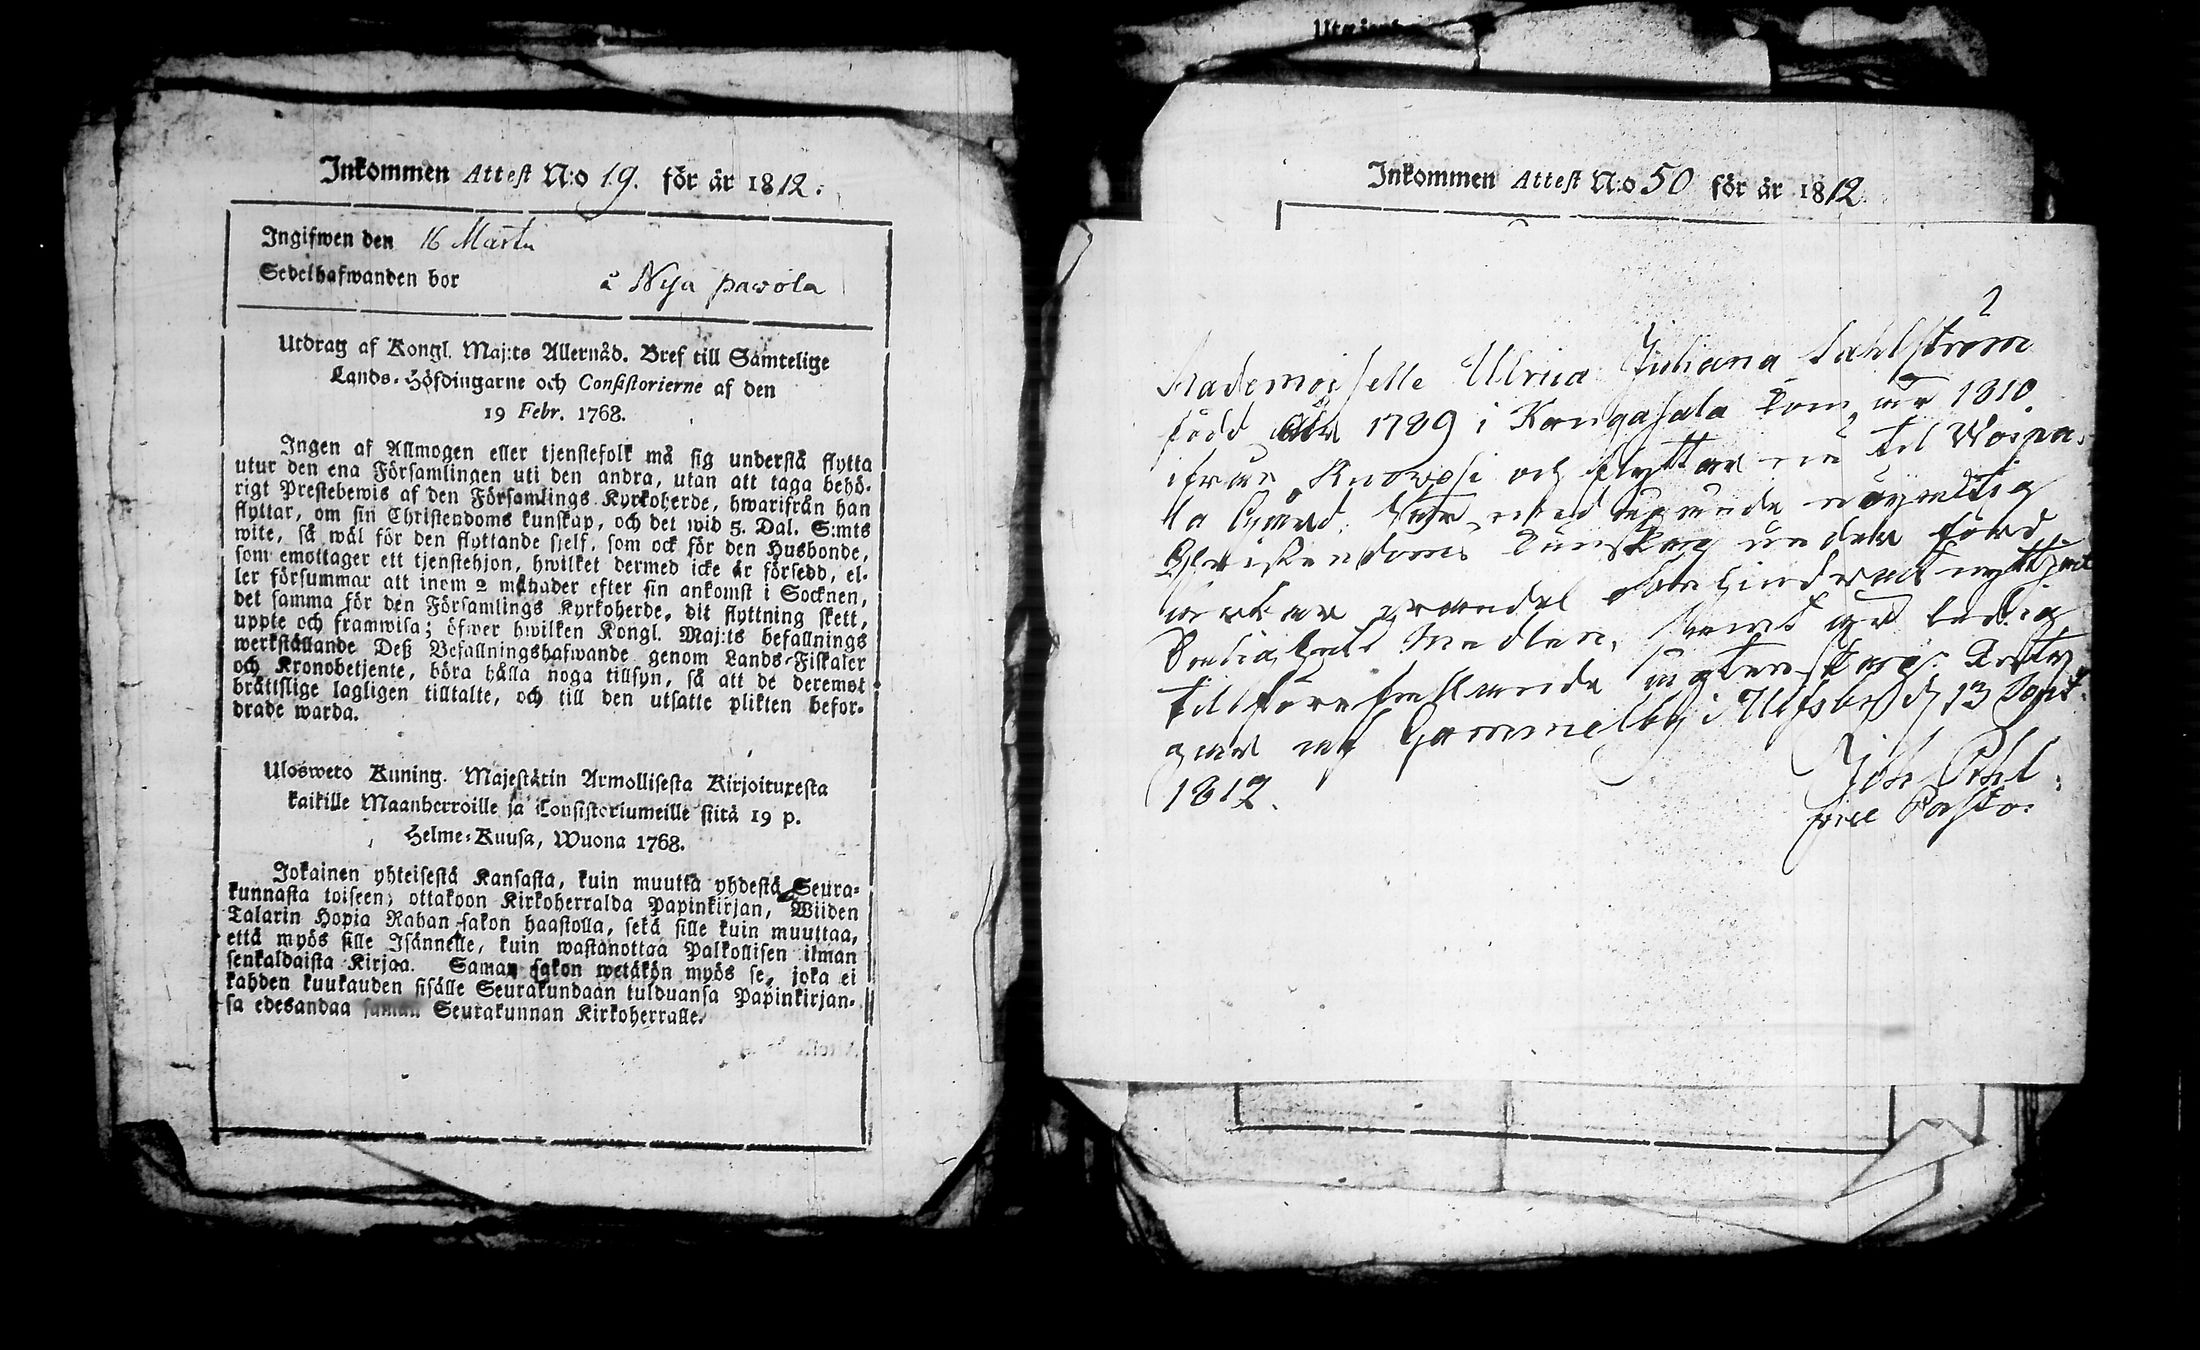 Inkommen Attest N:o 19. för år 1812.
Ingifwen den 16 Martii
Sedelhafwanden bor å Nya pawola
Utdrag af Kongl. Maj:ts Allernåd. Bref till Samtelige
Lands-Höfdingarne och Consistorierne af den
19 Febr. 1768.
Ingen af Allmogen eller tjenstefolk må sig understå flytta
utur den ena Församlingen uti den andra, utan att taga behö-
rigt Prestebewis af den Församlings Kyrkoherde, hwarifrån han
flyttar, om sin Christendoms kunskap, och det wid 5. Dal. S:mts
wite, så wäl för den flyttande sjelf, som ock för den Husbonde,
som emottager ett tjenstehjon, hwilket dermed icke är försedd, el-
ler försummar att inom 2 månader efter sin ankomst i Socknen,
det samma för den Församlings Kyrkoherde, dit flyttning skett,
uppte och framwisa; öfwer hwilken Kongl. Maj:ts befallnings
werkställande Deß Befallningshafwande genom Lands-Fiskaler
och Kronobetjente, böra hålla noga tillsyn, så att de deremot
bråttslige lagligen tilltalte, och till den utsatte plikten befor-
drade warda.
Ulosweto Kuning. Majestätin Armollisesta Kirjoituxesta
kaikille Maanherroille ja Consistoriumeille siitä 19 p.
Helme-Kuusa, Wuona 1768.
Jokainen yhteisestä Kansasta, kuin muutta yhdestä Seura-
kunnasta toiseen, ottakoon Kirkoherralda Papinkirjan, Wiiden
Talarin Hopia Rahan sakon haastolla, sekä sille kuin muuttaa,
että myös sille Isännelle, kuin wastanottaa Palkollisen ilman
senkaldaista Kirjaa. Saman sakon wetäkön myös se, joka ei
kahden kuukauden sisälle Seurakundaan tulduansa Papinkirjan-
sa edesandaa saman Seurakunnan Kirkoherralle.
Utgången
Inkommen Attest N:o 50 för år 1812
Mademoiselle Ulrica Juliana Sahlström
född år 1789 i Kangasala kom år 1810
ifrån och flyttar nu til
Christendoms kunskap under
obehindrad nyttjat
Salighets Medlen, samt är ledig
till
af Gammelby i Ulfsby d 13 Sept.
1812.
Joh. Pohl
vice Pastor